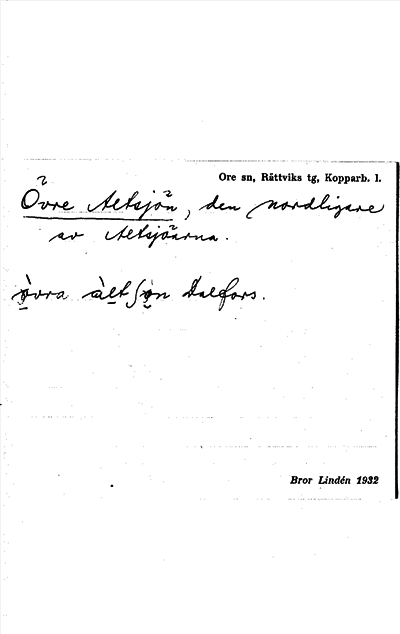 Ore sn, Rättviks tg, Kopparb. l.
Övre Altsjön, den nordligare
av Altsjöarna.
Dalfors.
Bror Lindén 1932